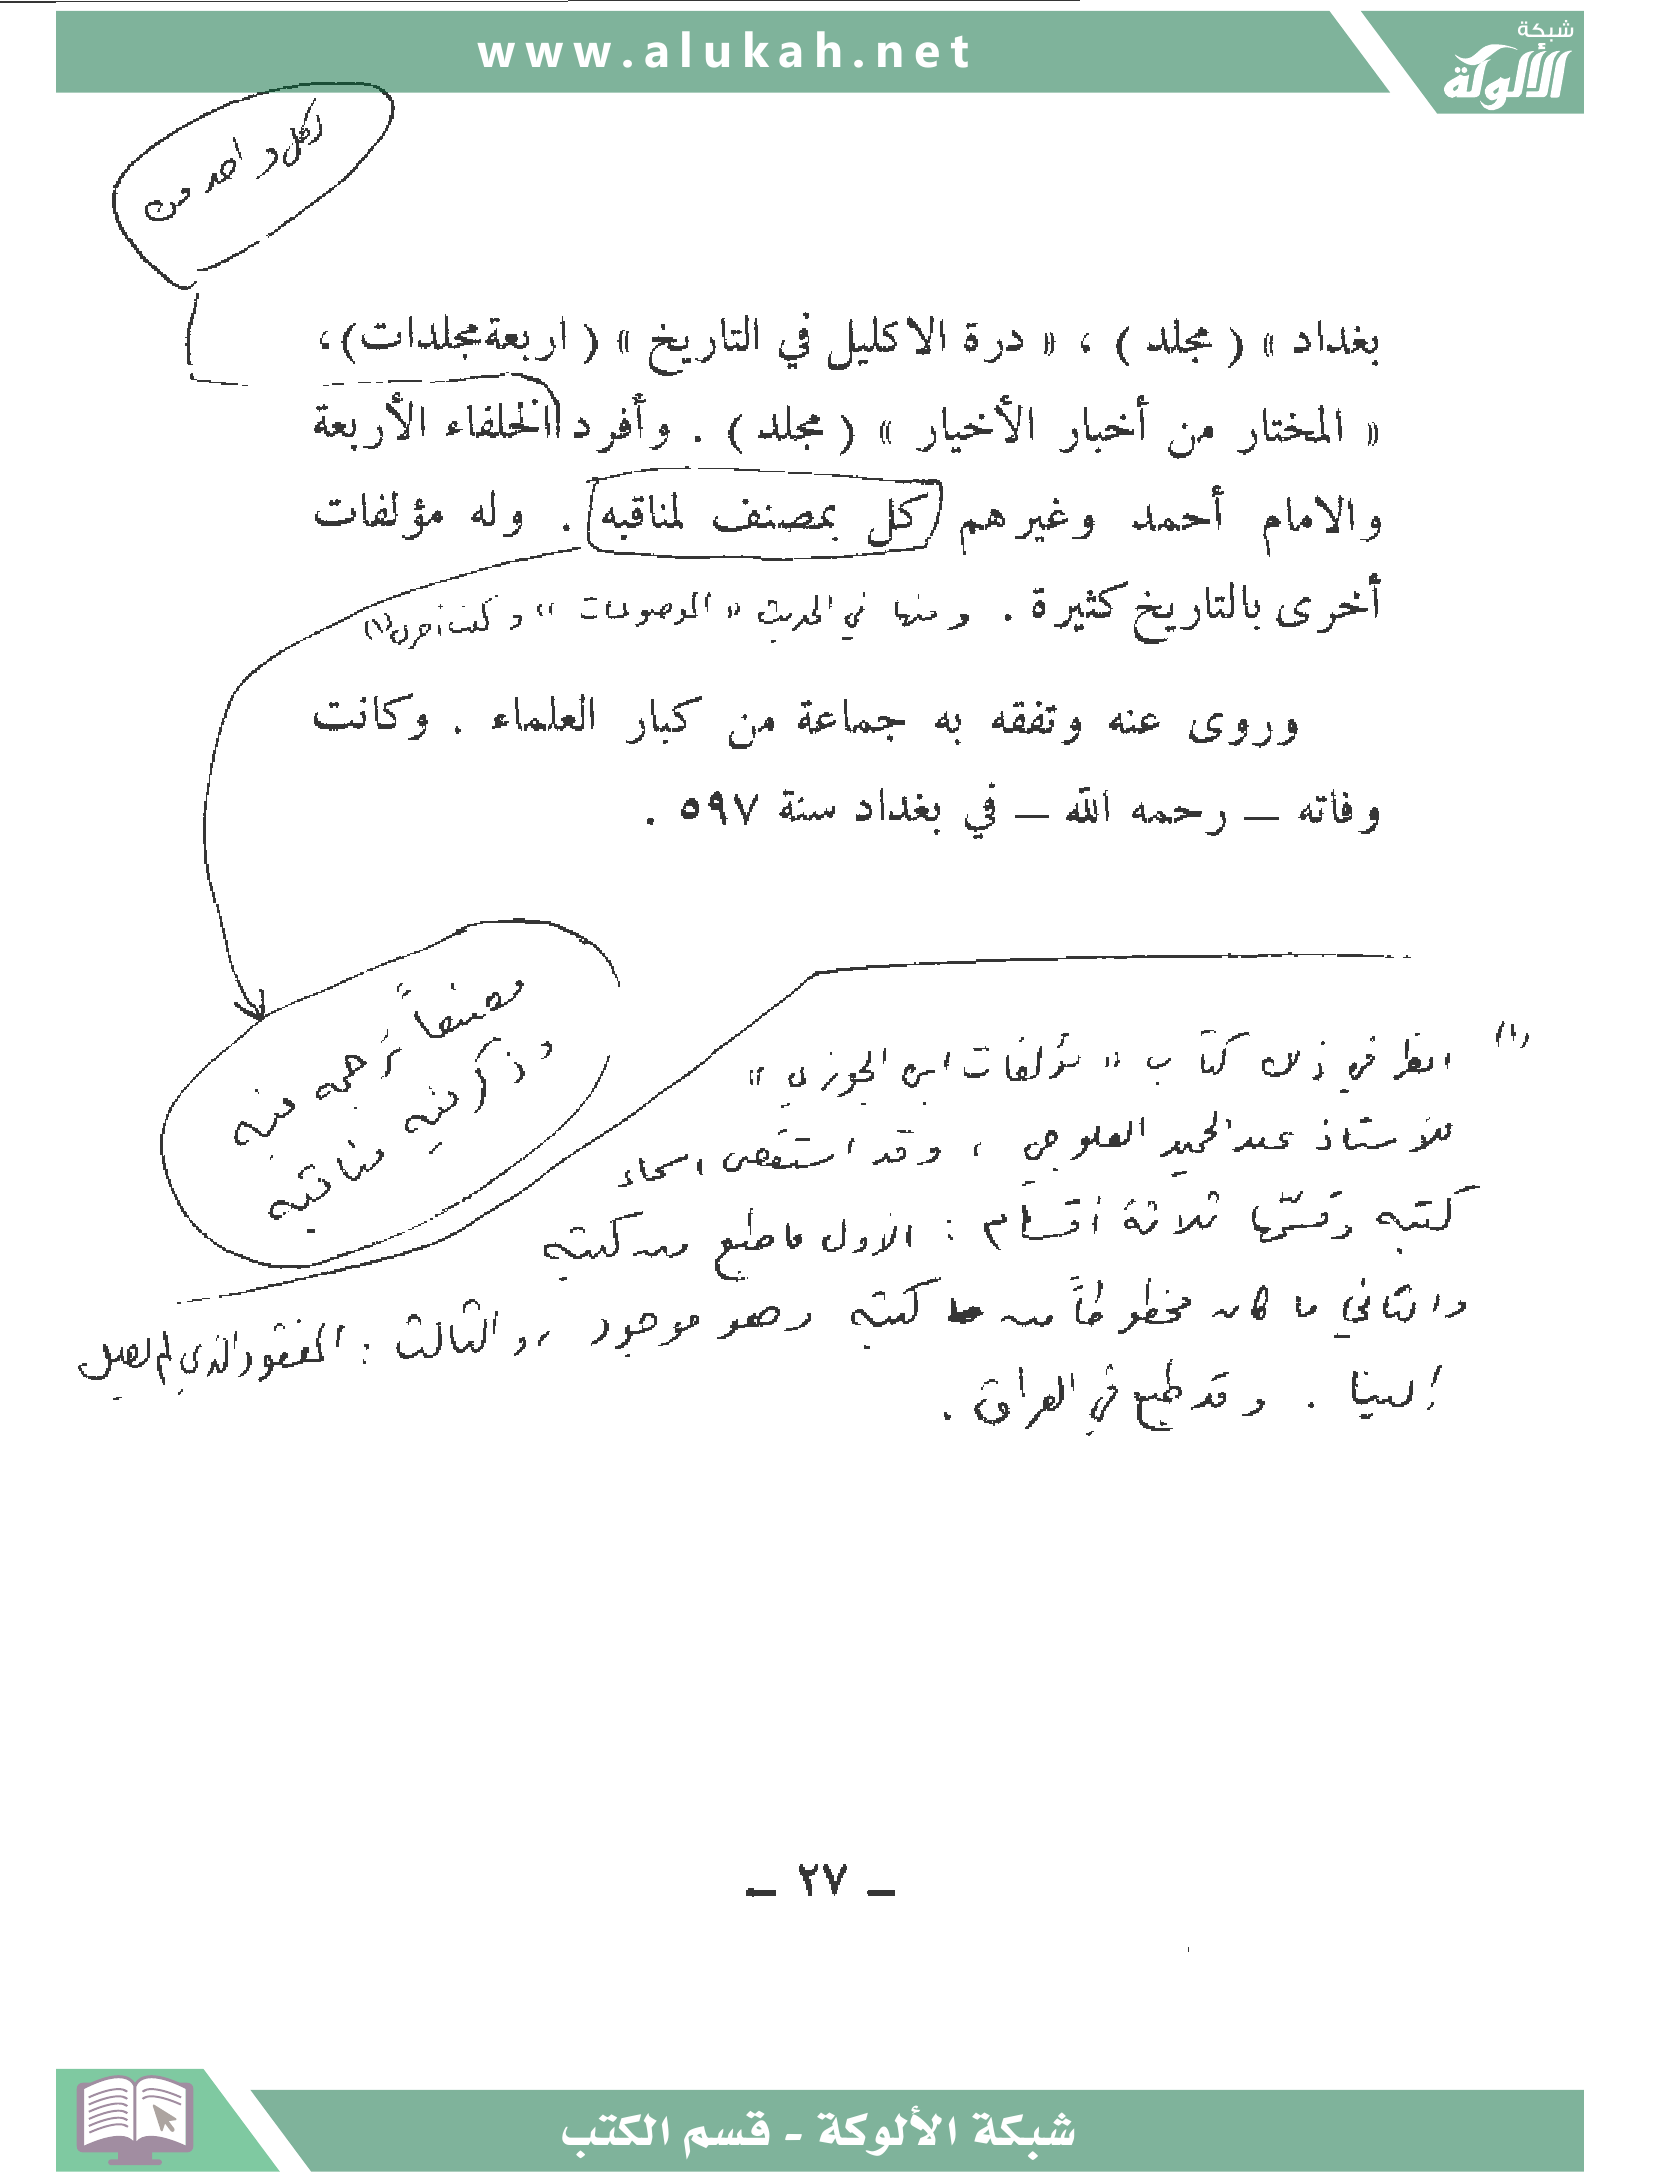 www.alukah.net
شبكة
الألوكة
لكل واحد من
بغداد » ( مجلد ) ، « درة الاكليل في التاريخ » ( اربعة مجلدات ) ،
« المختار من أخبار الأخيار » ( مجلد ) . وأفرد الخلفاء الأربعة
والامام أحمد وغيرهم كل بمصنف لمناقبه . وله مؤلفات
أخرى بالتاريخ كثيرة . ومنها في الحديث « الموضوعات » وكتب أخرى (١)
وروى عنه وتفقه به جماعة من كبار العلماء . وكانت
وفاته – رحمه الله – في بغداد سنة ٥٩٧ .
مصنفاً ترجمه فيه
وذكر فيه مناقبه
(١) انظر في ذلك كتاب « مؤلفات ابن الجوزي »
للأستاذ عبد الحميد العلوجي ، وقد استقصى اسماء
كتبه وقسّمها ثلاثة أقسام : الأول ما طبع من كتبه
والثاني ما كان مخطوطاً من كتبه وهو موجود ، والثالث : المفقود الذي لم يصل
إلينا . وقد طبع في العراق .
– ٢٧ –
شبكة الألوكة - قسم الكتب